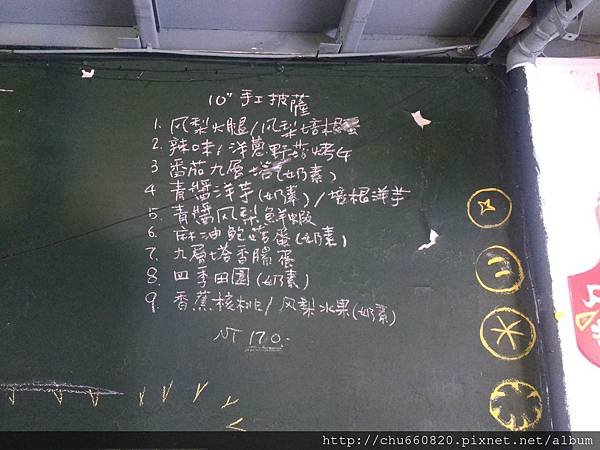 10" 手工披薩
1. 风梨火腿/风梨培根蛋
2. 辣味/洋蔥野菇烤
3. 番茄九層塔(奶素)
4. 青醬洋芋(奶素)/培根洋芋
5. 青醬风梨鮮蝦
6. 麻油鮑菇蛋(奶素)
7. 九層塔香腸蛋
8. 四季田園(奶素)
9. 香蕉核桃/风梨水果(奶素)
NT 170.
http://chu660820.pixnet.net/album